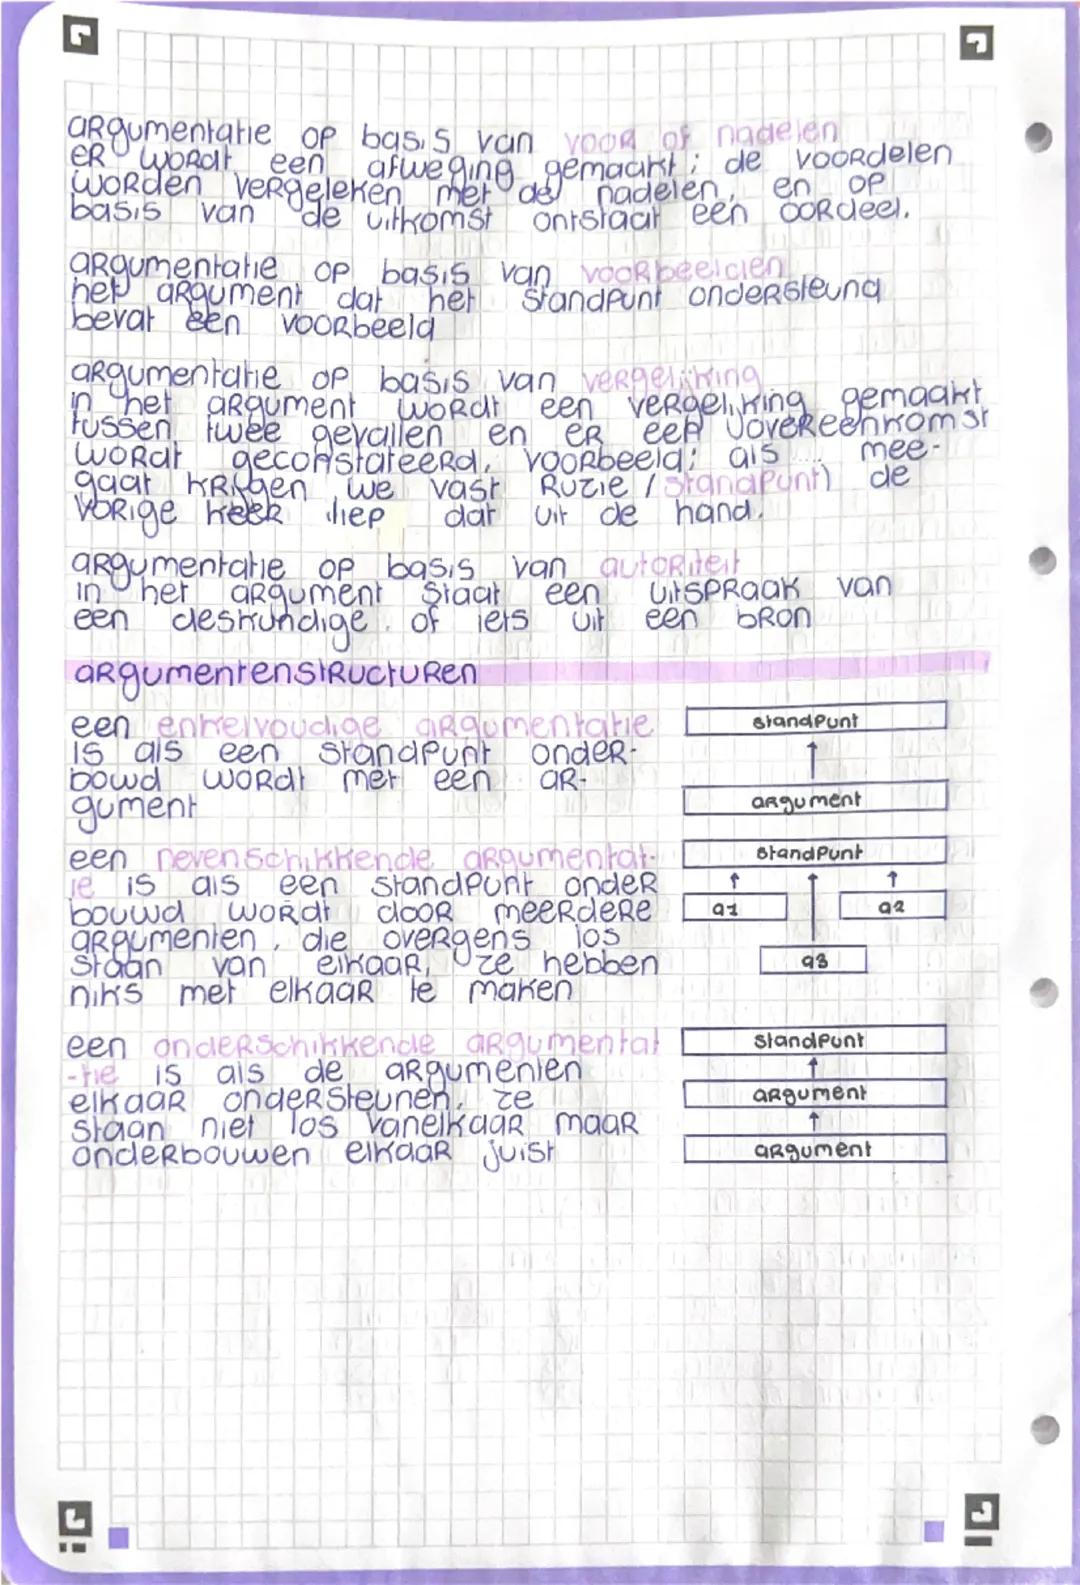 argumentatie op basis van voor of nadelen
er wordt een afweging gemaakt; de voordelen
worden vergeleken met de nadelen, en op
basis van de uitkomst ontstaat een oordeel.
argumentatie op basis van voorbeelden
het argument dat het standpunt ondersteund
bevat een voorbeeld
argumentatie op basis van vergelijking
in het argument wordt een vergelijking gemaakt
tussen twee gevallen en er een overeenkomst
wordt geconstateerd. voorbeeld: als .... mee-
gaat krijgen we vast ruzie (standpunt) de
vorige keer liep dat uit de hand.
argumentatie op basis van autoriteit
in het argument staat een uitspraak van
een deskundige of iets uit een bron
argumentenstructuren
een enkelvoudige argumentatie
is als een standpunt onder-
bowd wordt met een ar-
gument
standpunt
argument
een nevenschikkende argumentat-
ie is als een standpunt onder
bouwd wordt door meerdere
argumenten, die overgens los
staan van elkaar, ze hebben
niks met elkaar te maken
standpunt
a1
a2
a3
een onderschikkende argumentat
-tie is als de argumenten
elkaar ondersteunen, ze
staan niet los vanelkaar maar
onderbouwen elkaar juist
standpunt
argument
argument